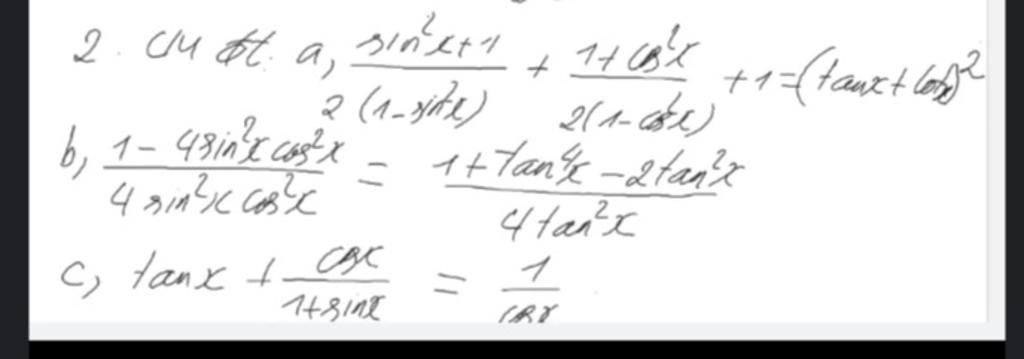 2. CM đt. a, \frac{sin²x+1}{2(1-sin²x)} + \frac{1+cos²x}{2(1-cos²x)} +1=(tanx+cotx)²
b, \frac{1-4sin²xcos²x}{4sin²xcos²x} = \frac{1+tan⁴x-2tan²x}{4tan²x}
c, tanx + \frac{cosx}{1+sinx} = \frac{1}{cosx}